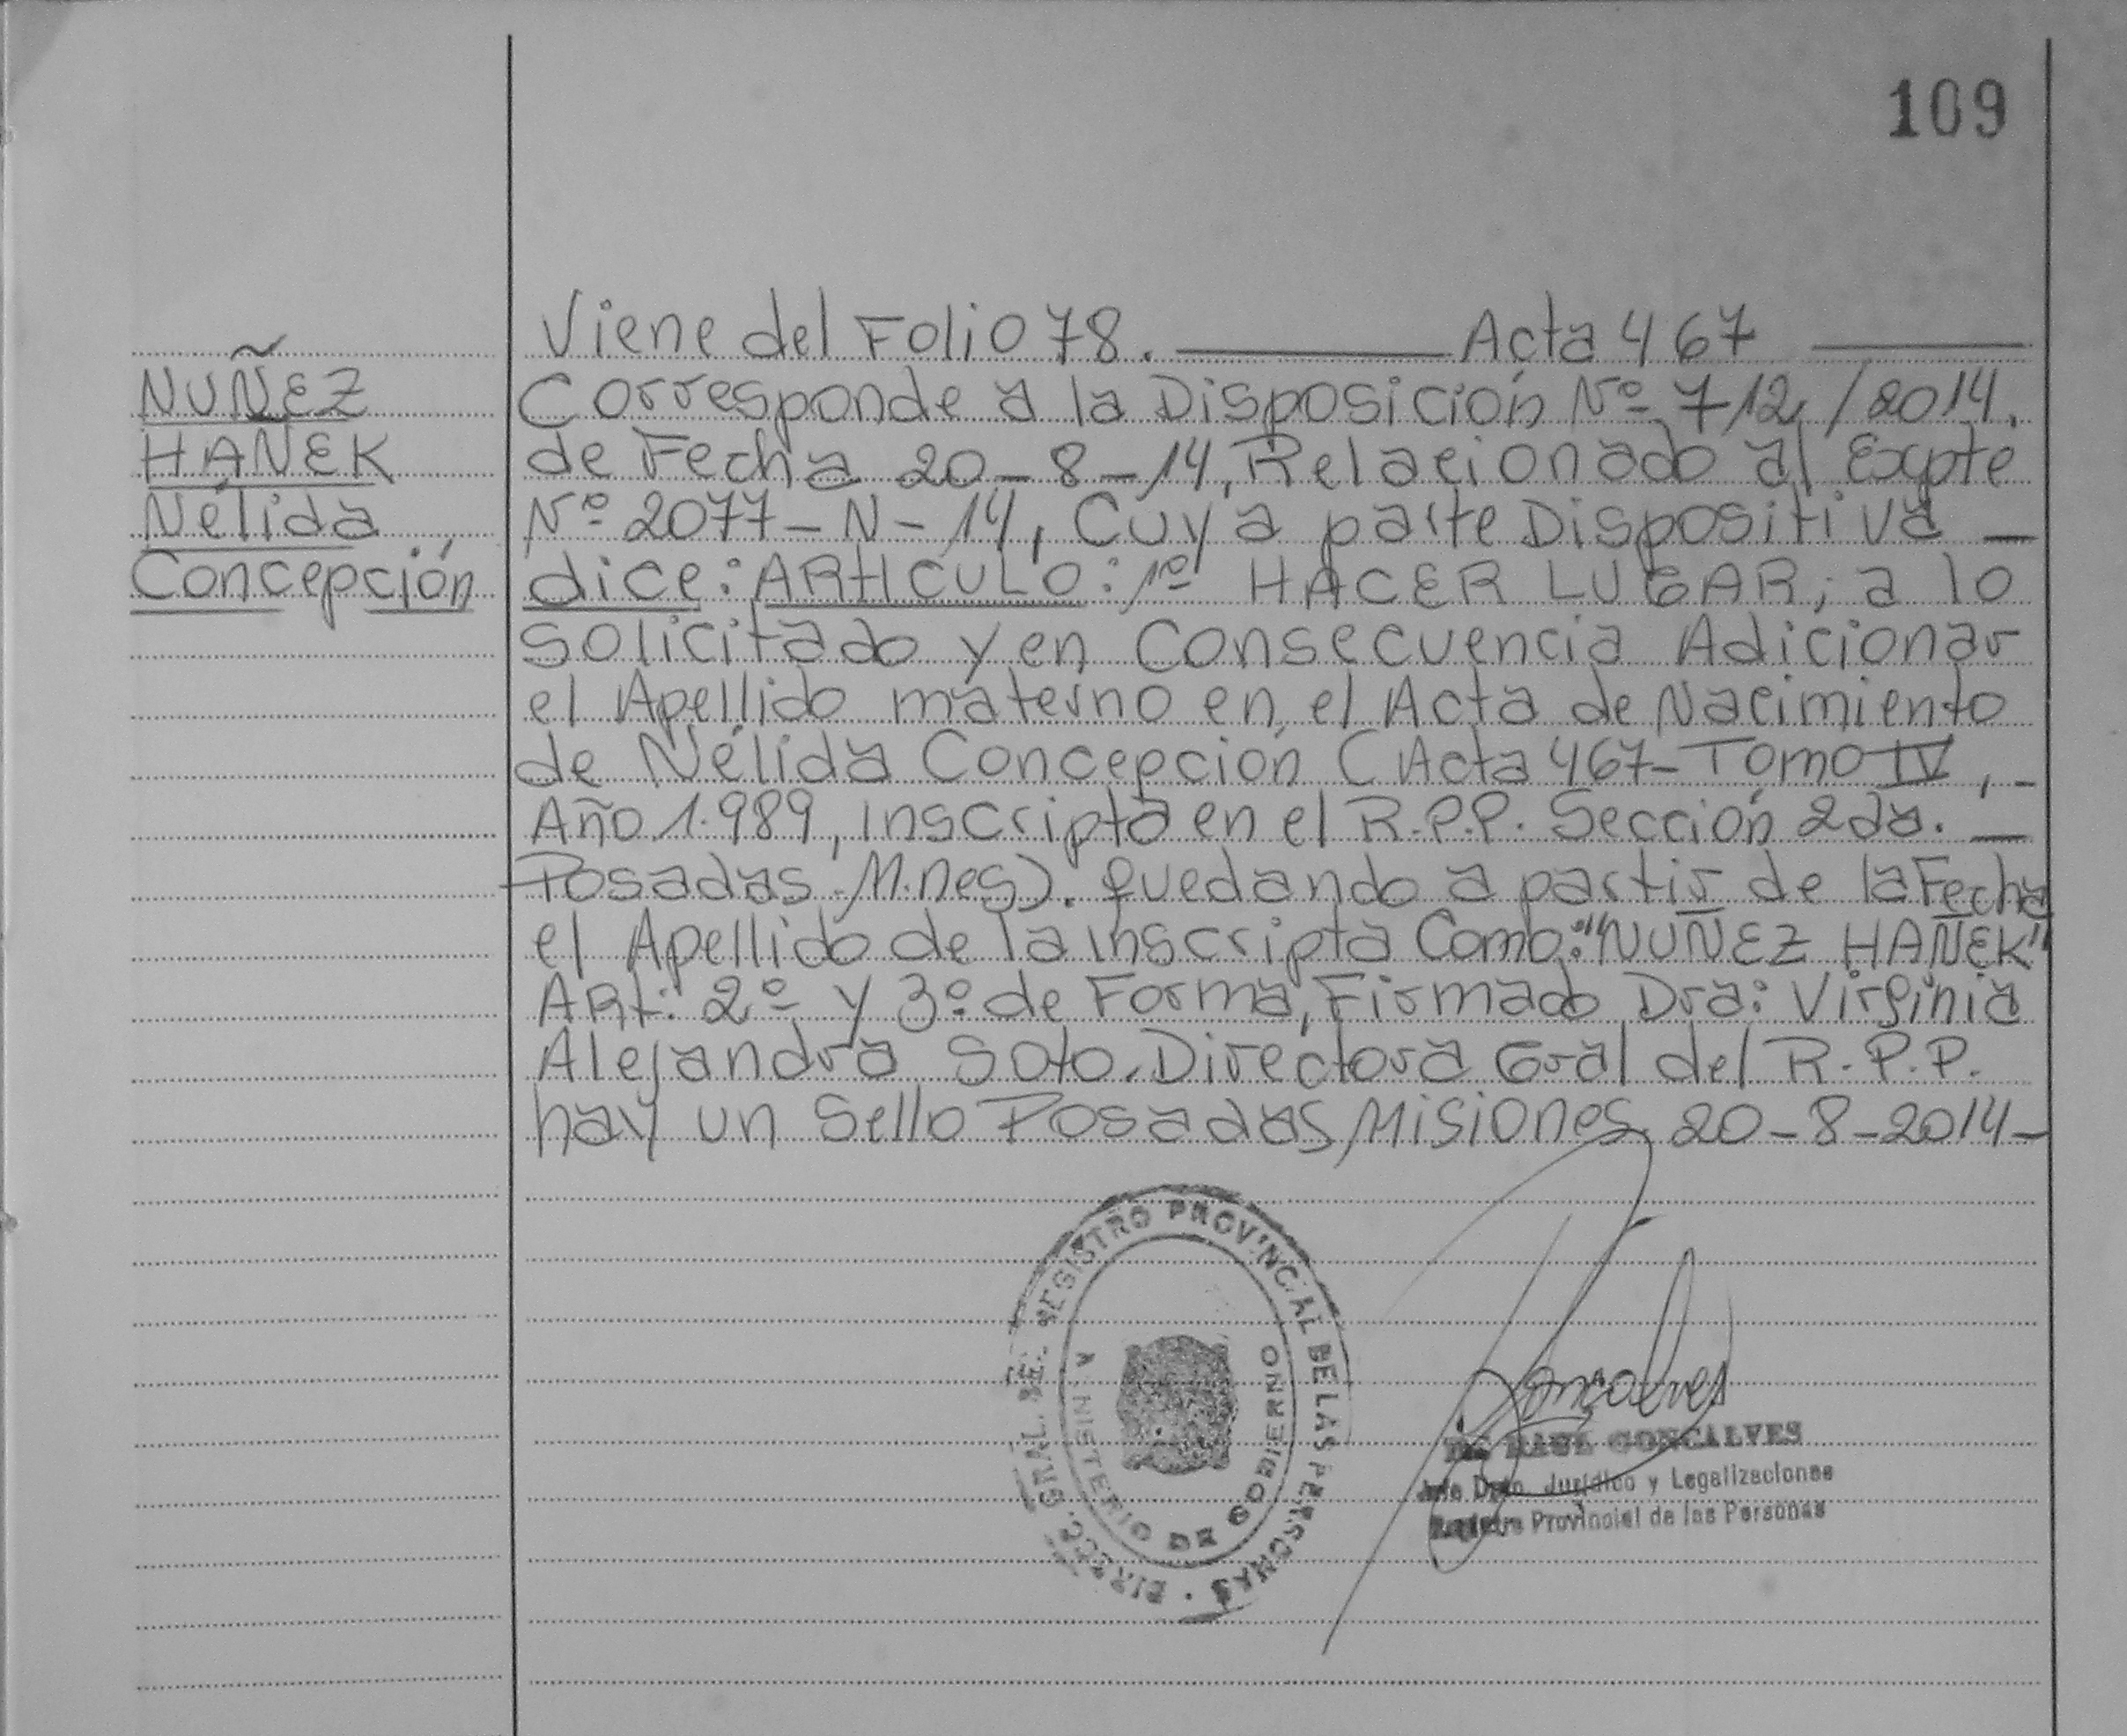 109
NUÑEZ
HAÑEK
Nélida
Concepción
Viene del Folio 78. Acta 467
Corresponde a la Disposición Nº 712/2014.
de Fecha 20-8-14, Relacionado al Expte
Nº 2077-N-14, Cuya parte Dispositiva
dice: ARTICULO: 1º HACER LUGAR; a lo
solicitado y en Consecuencia Adicionar
el Apellido materno en el Acta de Nacimiento
de Nélida Concepción (Acta 467-Tomo IV,-
Año 1.989, inscripta en el R.P.P. Sección 2da.
Posadas M.nes). quedando a partir de la Fecha
el Apellido de la inscripta Como: "NUÑEZ HAÑEK"
ARt: 2º y 3º de Forma, Firmado Dra: Virginia
Alejandra Soto. Directora Gral del R.P.P.
hay un Sello Posadas, Misiones 20-8-2014-
REGISTRO PROVINCIAL DE LAS PERSONAS
MINISTERIO DE GOBIERNO
Goncalves
RAUL GONCALVES
Jefe Dpto. Jurídico y Legalizaciones
Registro Provincial de las Personas